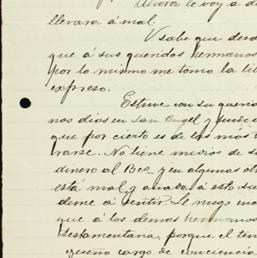 Ahora le voy a d
llevara á mal.
V sabe que desd
que á sus queridos hermanos
por lo mismo me tomo la lib
expreso.
Estuve con su querid
nos dias en San Angel y
que por cierto es de las mas t
rarse. No tiene medios de s
dinero al Bco y en algunas otr
está mal, y
deme á sentir. Le ruego
que á los demas hermanos
testamentaria, porque el tem
cargo de conciencia